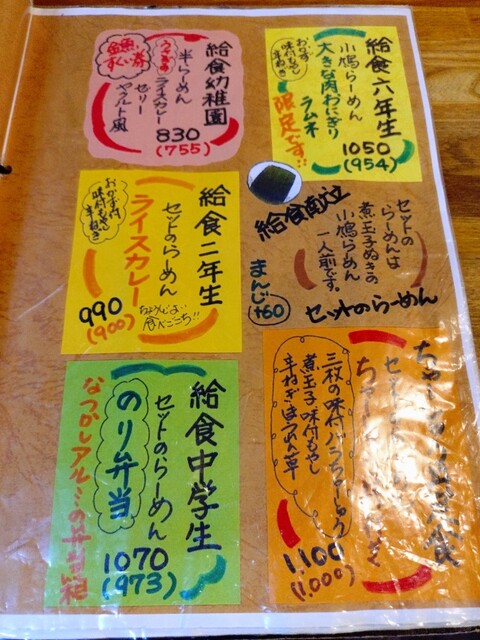 給食幼稚園
半らーめん
うさぎの
ライスカレー
ゼリー
ヤクルト風
金魚
すくい券
830
(755)
給食六年生
小鳩らーめん
大きな肉おにぎり
ラムネ
おかず
味付もやし
辛ねぎ
限定です!!
1050
(954)
給食二年生
セットのらーめん
ライスカレー
おかず付
味付もやし
辛ねぎ
ちょうどよい
食べごこち!!
990
(900)
給食
セットの
らーめんは
煮玉子ぬきの
小鳩らーめん
一人前です。
セットのらーめん
まんじ
+60
給食中学生
セットのらーめん
のり弁当
なつかしアルミの弁当箱
1070
(973)
食
三枚の味付バラちゃーしゅう
煮玉子味付もやし
辛ねぎほうれん草
1,100
(1,000)